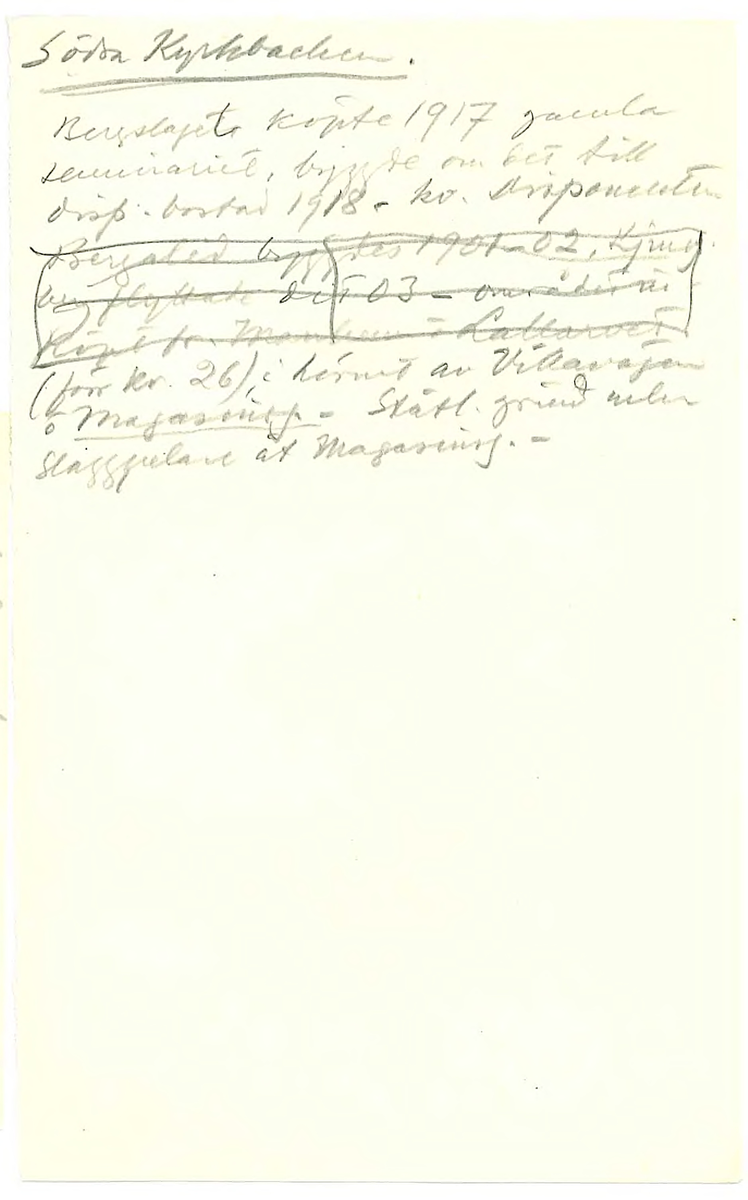 Södra Kyrkbacken.
Bergslaget köpte 1917 gamla
seminariet, byggde om det till
disp. bostad 1918 - kv. Disponenten
Bergalid byggdes 1901-02, Ljung-
berg flyttade dit 03 - området är
köpt fr. i Lallarvet.
(förr kv. 26), i hörnet av Villavägen
o Magasinsg. - Ståtl. grind mellan
slaggpelare åt Magasinsg. -